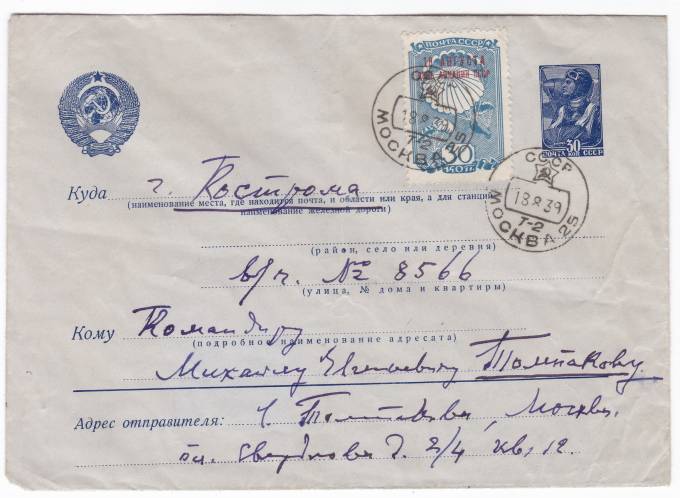 ПОЧТА СССР
18 АВГУСТА
ДЕНЬ АВИАЦИИ СССР
30 КОП.
30
ПОЧТА КОП СССР
МОСКВА 25
18 8 39
Т-2
СССР
18 8 39
Т-2
МОСКВА 25
Куда г. Кострома
(наименование места, где находится почта, и области или края, а для станции
наименование железной дороги)
(район, село или деревня)
в/ч. № 8566
(улица, № дома и квартиры)
Кому Командиру
(подробное наименование адресата)
Михаилу Евгеньевичу
Адрес отправителя: Москва,
пл. Свердлова д. 2/4 кв. 12.